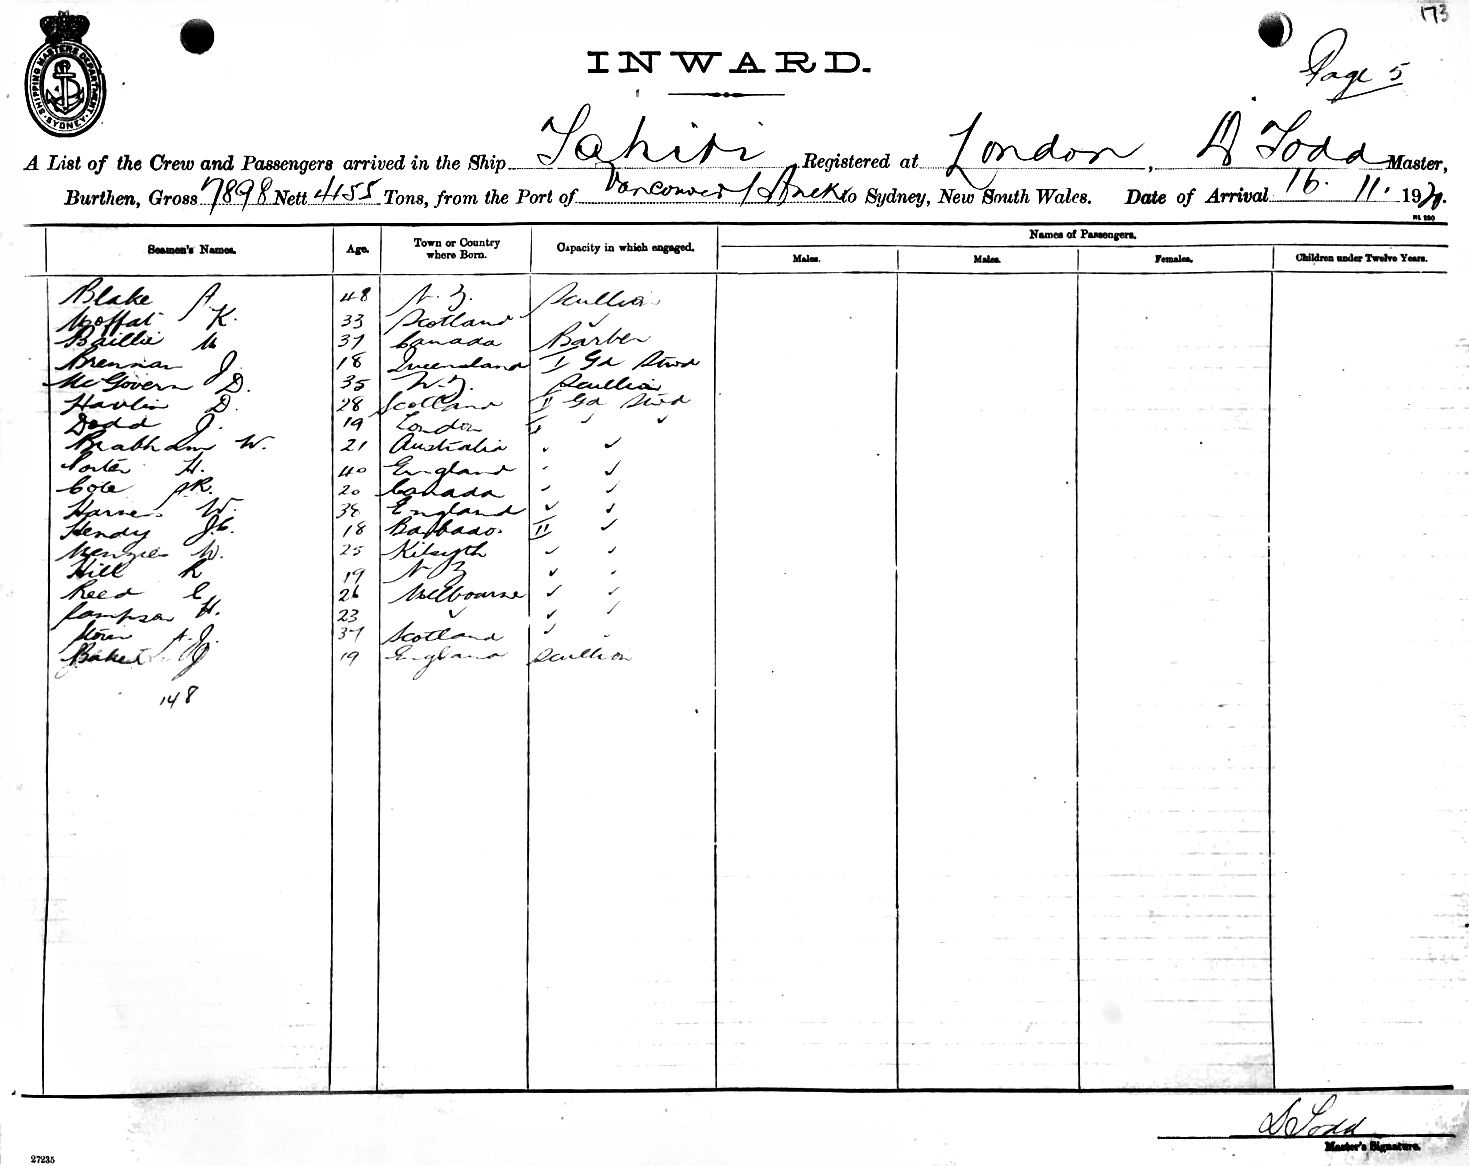 173
INWARD.
Page 5
SHIPPING MASTERS DEPARTMENT
SYDNEY
A List of the Crew and Passengers arrived in the Ship Tahiti Registered at London, D Todd Master,
Burthen, Gross 7898 Nett 4155 Tons, from the Port of Vancouver / to Sydney, New South Wales. Date of Arrival 16. 11. 1920.
Seamen's Names. Age. Town or Country where Born. Capacity in which engaged. Names of Passengers.
Males. Males. Females. Children under Twelve Years.
Blake A 48 N.Z. Scullion
Moffat K. 33 Scotland ✓
Baillie M 37 Canada Barber
Brennan J. 18 Queensland I Gd Stwd
McGovern D. 35 N.Z. Scullion
Havlin D. 28 Scotland II Gd Stwd
Dodd J. 19 London ✓ ✓
Brabham W. 21 Australia ✓
Porter H. 40 England ✓
Cote 20 Canada ✓ ✓
Harness W. 38 England ✓ ✓
Hendy J.C. 18 Barbados II ✓
Menzies W. 25 Kilsyth ✓ ✓
Hill R 19 N Z ✓ ✓
Reed C 26 Melbourne ✓ ✓
Sampson H. 23 ✓ ✓ ✓
A.J. 37 Scotland ✓
Baker J 19 England Scullion
148
D Todd
Master's Signature.
27235